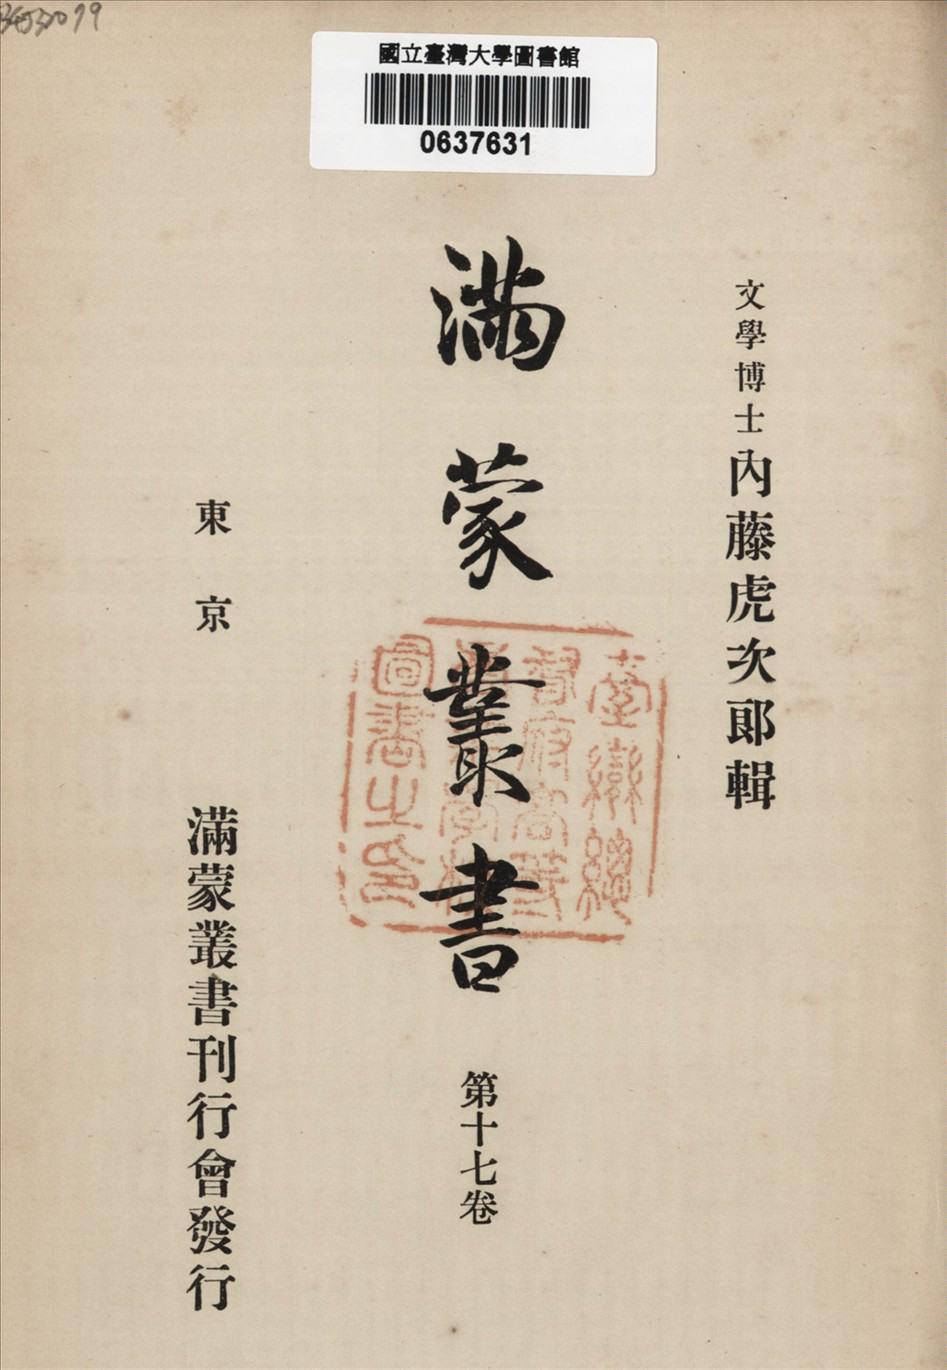 國立臺灣大學圖書館
0637631
文學博士內藤虎次郎輯
滿蒙叢書
第十七卷
東京
滿蒙叢書刊行會發行
臺灣總
督府高等
農林學校
圖書之印